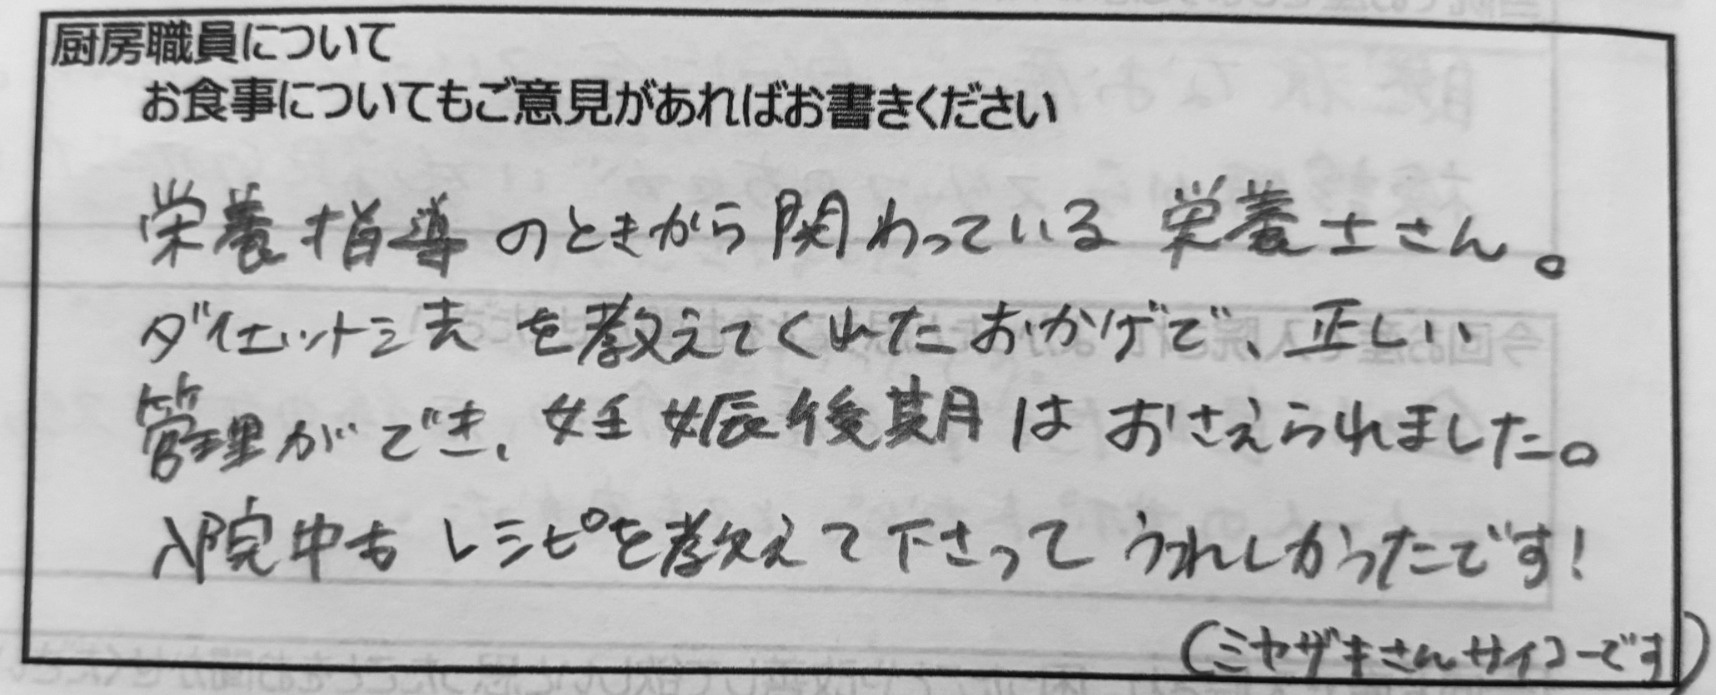 厨房職員について
お食事についてもご意見があればお書きください
栄養指導のときから関わっている栄養士さん。
ダイエット法を教えてくれたおかげで、正しい
管理ができ、妊娠後期はおさえられました。
入院中もレシピを教えて下さってうれしかったです!
(ミヤザキさんサイコーです)